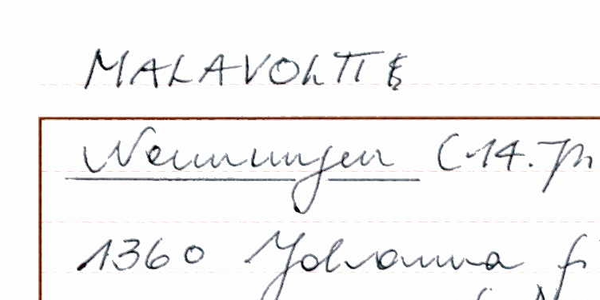 MALAVOLTI &
Nennungen (14. Jh
1360 Johanna fi